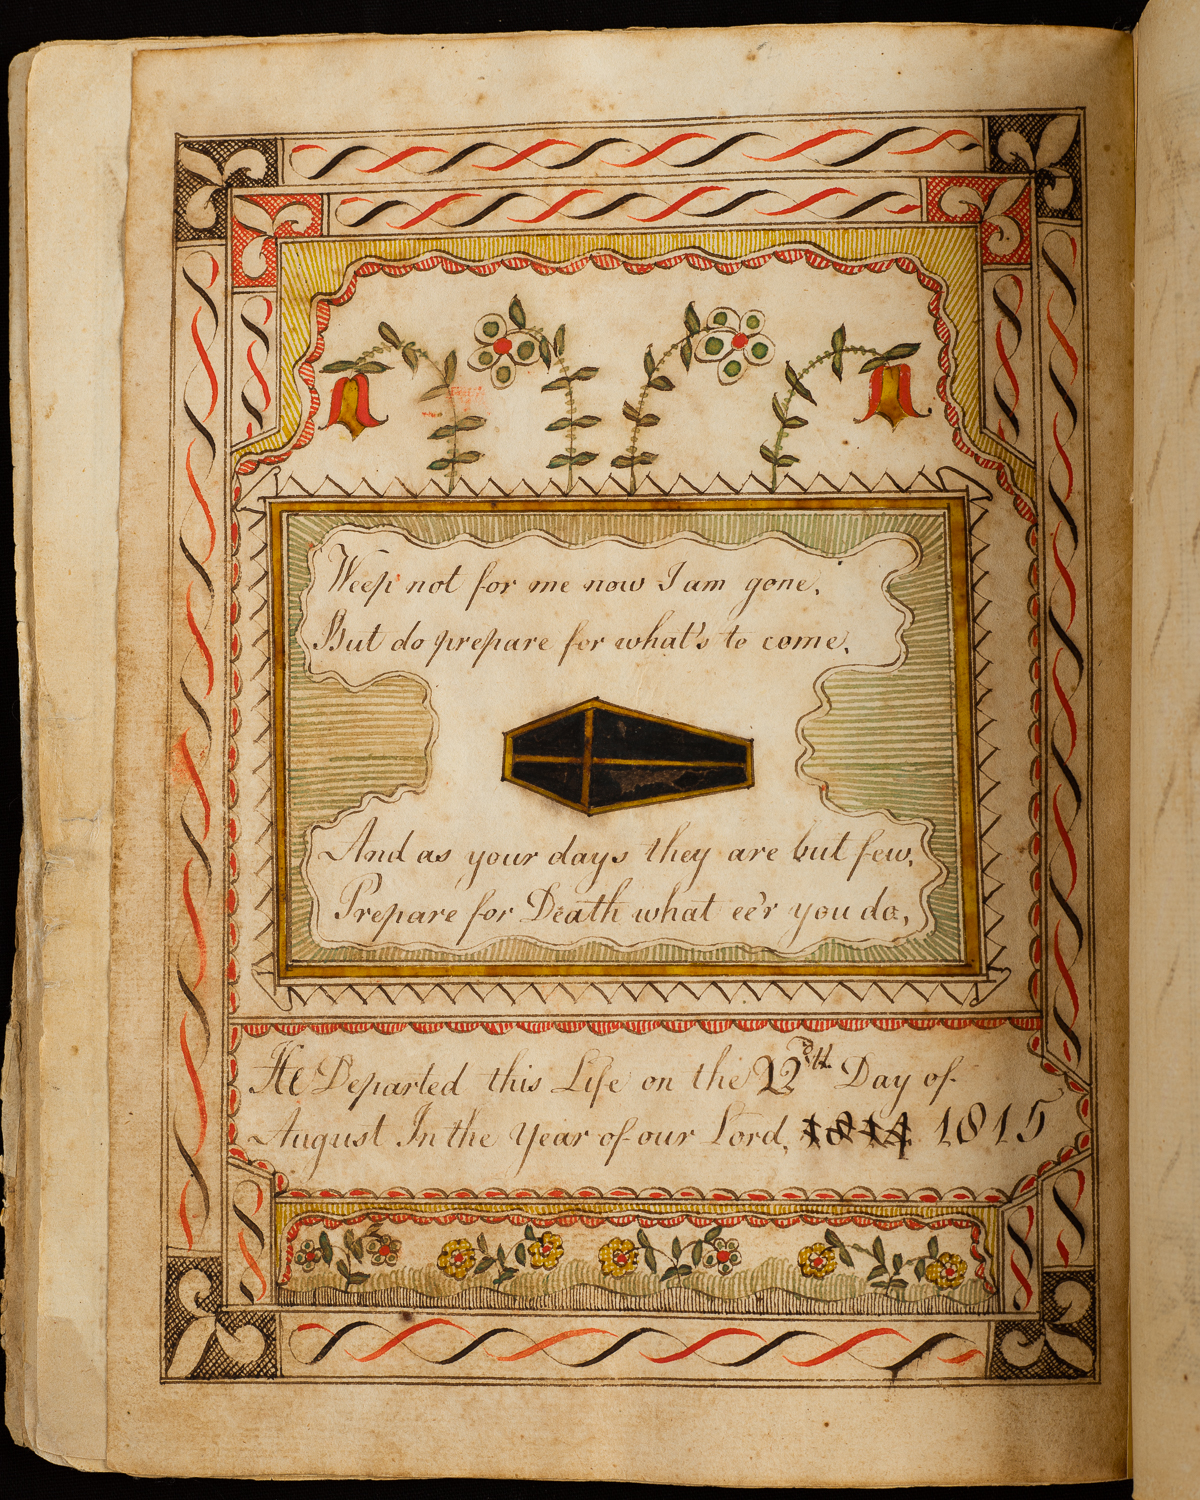 Weep not for me now I am gone,
But do prepare for what's to come,
And as your days they are but few,
Prepare for Death what ee'r you do,
He Departed this Life on the 22th Day of
August In the Year of our Lord, 1814 1815